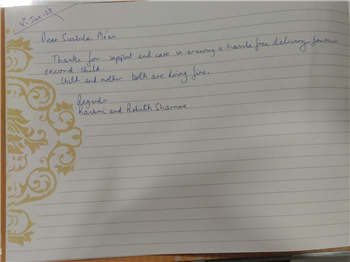 4th Jan-23
Dear Sushila Ma'am
Thanks for support and care in ensuring a hassle free delivery
second child
Child and mother both are doing fine.
Regards
Rashmi and Rohith Sharma